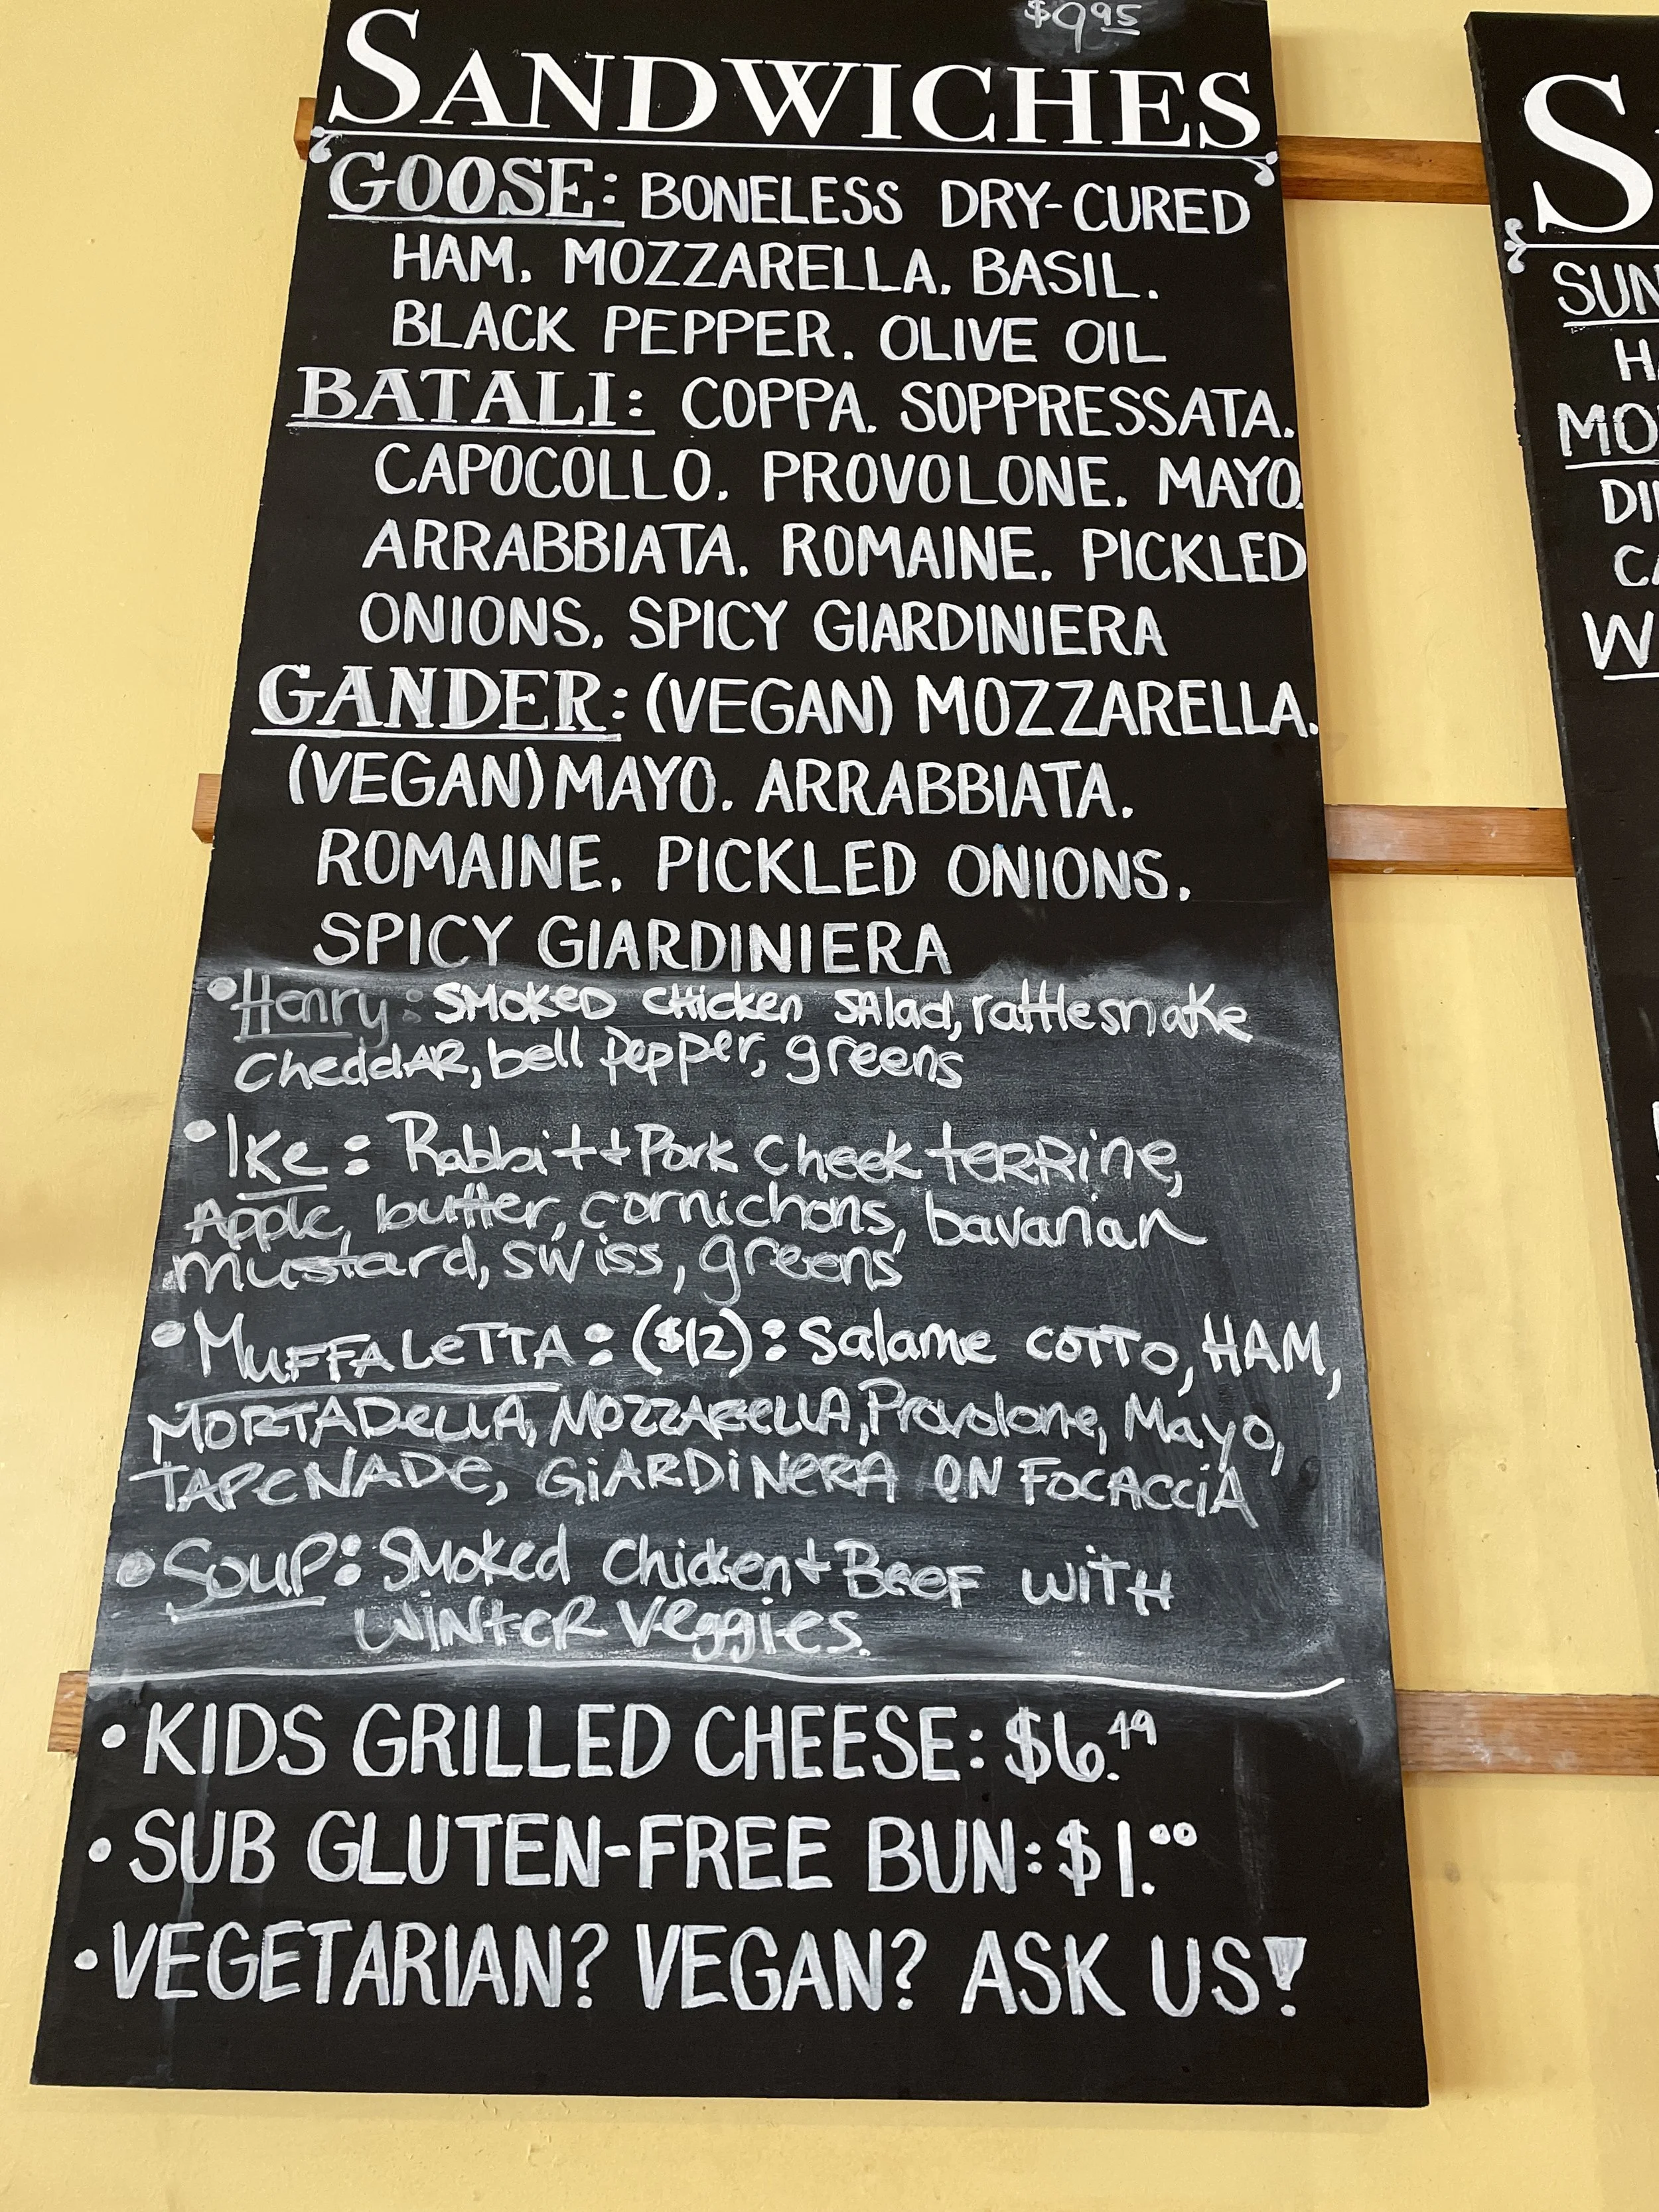 $9.95
SANDWICHES
GOOSE: BONELESS DRY-CURED
HAM, MOZZARELLA, BASIL,
BLACK PEPPER, OLIVE OIL
BATALI: COPPA, SOPPRESSATA,
CAPOCOLLO, PROVOLONE, MAYO,
ARRABBIATA, ROMAINE, PICKLED
ONIONS, SPICY GIARDINIERA
GANDER: (VEGAN) MOZZARELLA,
(VEGAN) MAYO, ARRABBIATA,
ROMAINE, PICKLED ONIONS,
SPICY GIARDINIERA
•Henry: SMOKED CHICKEN SAlad, rattlesnake
CheddAR, bell pepper, greens
•Ike: Rabbit + Pork Cheek terrine,
Apple, butter, cornichons, bavarian
mustard, swiss, greens
•MUFFALeTTA: ($12): Salame COTTO, HAM,
MORTADeLLA, MOZZAReLLA, Provolone, Mayo,
TAPeNADe, GiARDiNeRA ON FOCACCiA
•Soup: Smoked Chicken + BeeF WiTH
WiNteR Veggies.
•KIDS GRILLED CHEESE: $6.49
•SUB GLUTEN-FREE BUN: $1.00
•VEGETARIAN? VEGAN? ASK US!
S
SUN
H
MO
DI
CA
W